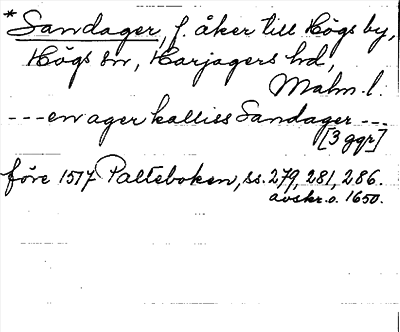 *Sandager, f. åker till Högs by,
Högs sn, Harjagers hd,
Malm. l.
---en ager kalliss Sandager ---
[3 ggr]
före 1517 Palteboken, ss. 279, 281, 286.
avskr. o. 1650.